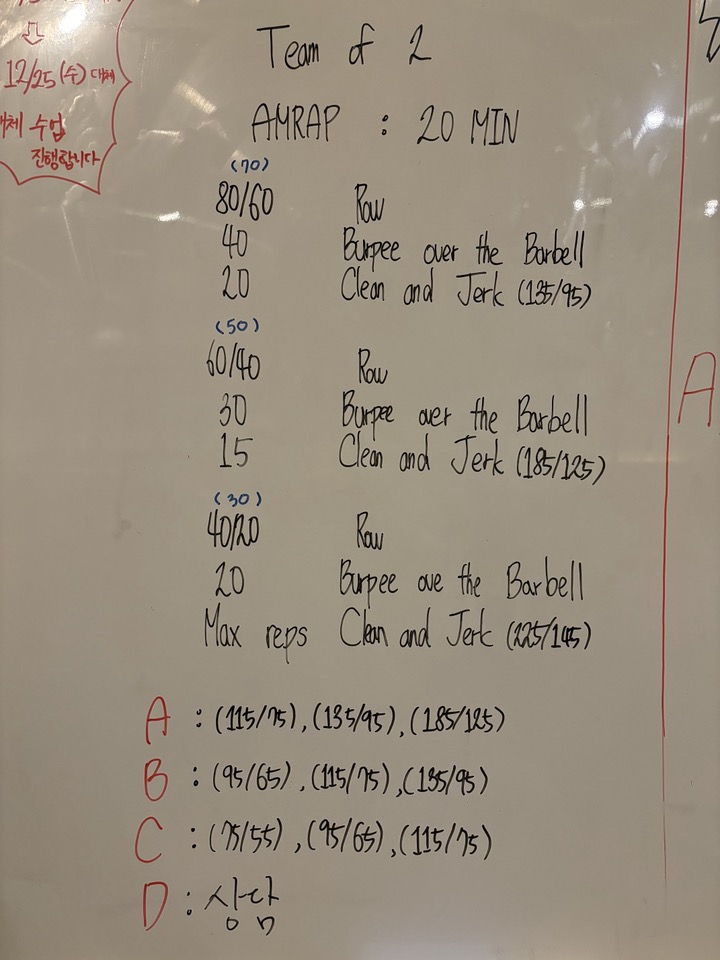 12/25(수) 대체
수업
진행합니다
Team of 2
AMRAP : 20 MIN
(70)
80/60 Row
40 Burpee over the Barbell
20 Clean and Jerk (135/95)
(50)
60/40 Row
30 Burpee over the Barbell
15 Clean and Jerk (185/125)
(30)
40/20 Row
20 Burpee ove the Barbell
Max reps Clean and Jerk (225/145)
A : (115/75), (135/95), (185/125)
B : (95/65), (115/75), (135/95)
C : (75/55), (95/65), (115/75)
D : 상담
A